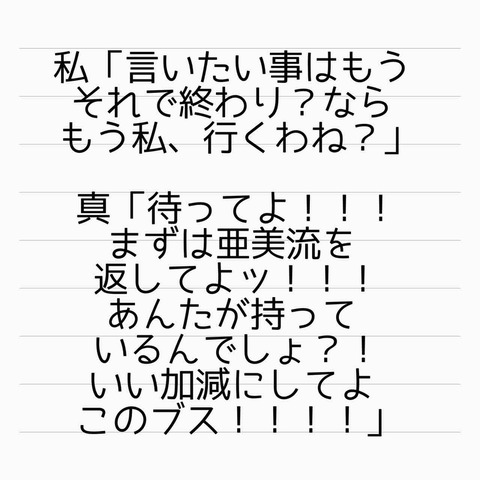 私「言いたい事はもう
それで終わり？なら
もう私、行くわね？」
真「待ってよ！！！
まずは亜美流を
返してよッ！！！
あんたが持って
いるんでしょ？！
いい加減にしてよ
このブス！！！！」